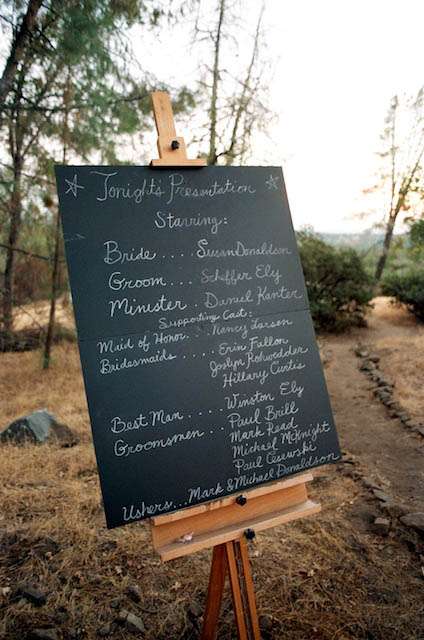 Tonight's Presentation
Starring:
Bride .... Susan Donaldson
Groom .... Scheffer Ely
Minister . Daniel Kanter
Supporting Cast:
Maid of Honor .. Nancy Larsen
Bridesmaids ..... Erin Fallon
Joslyn Rohwedder
Hillary Curtis
Best Man .... Winston Ely
Groomsmen .. Paul Brill
Mark Read
Michael McKnight
Paul
Ushers... Mark & Michael Donaldson